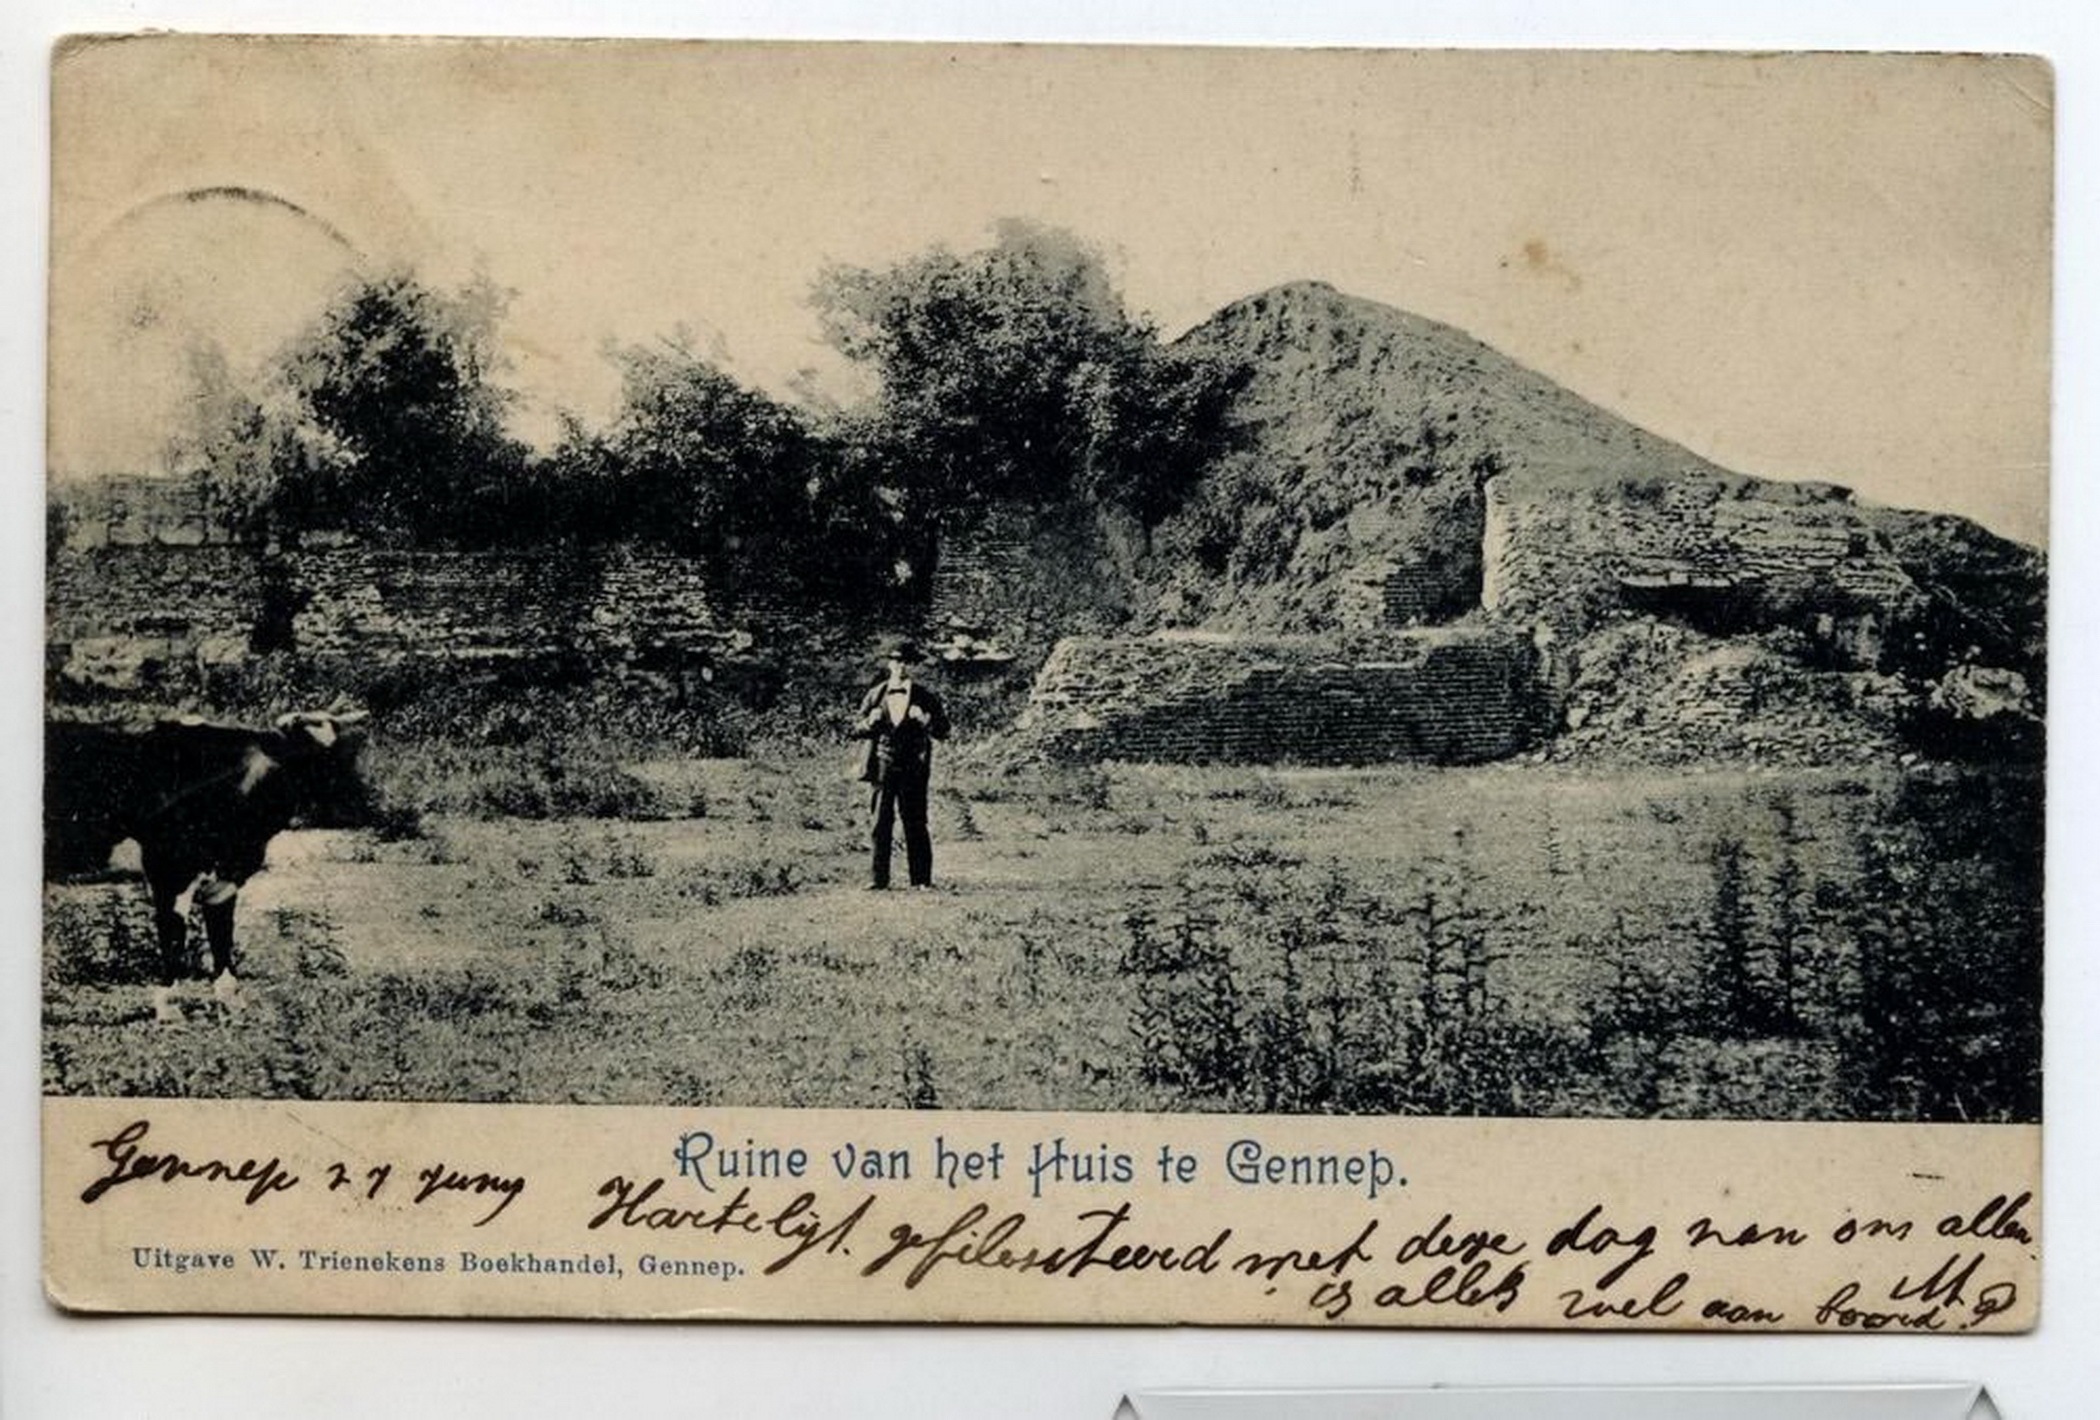 Ruine van het Huis te Gennep.
Gennep 27 Juny
Hartelijk gefilesiteerd met deze dag van ons allen.
Uitgave W. Trienekens Boekhandel, Gennep.
is alles wel aan boord?